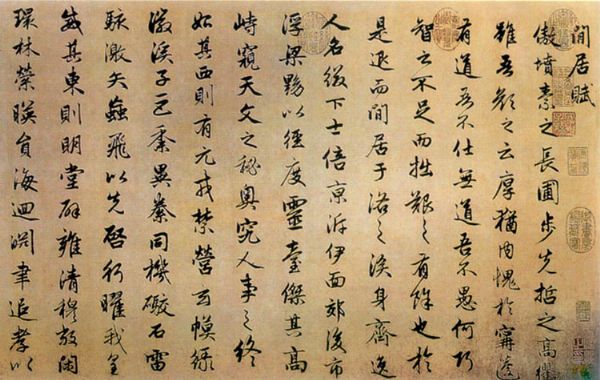 閒居賦
傲墳素之長圃步先哲之高衢
雖吾顏之云厚猶內愧於甯蘧
有道吾不仕無道吾不愚何巧
智之不足而拙艱之有餘也於
是退而閒居于洛之涘身齊逸
人名綴下士倍京泝伊面郊後市
浮梁黝以徑度靈臺傑其高
峙窺天文之秘奧究人事之終
始其西則有元戎禁營玄幙綠
徽溪子巨黍異絭同機礮石雷
駭激矢蝱飛以先啓行曜我皇
威其東則明堂辟雍清穆敞閑
環林縈暎員海迴淵聿追孝以